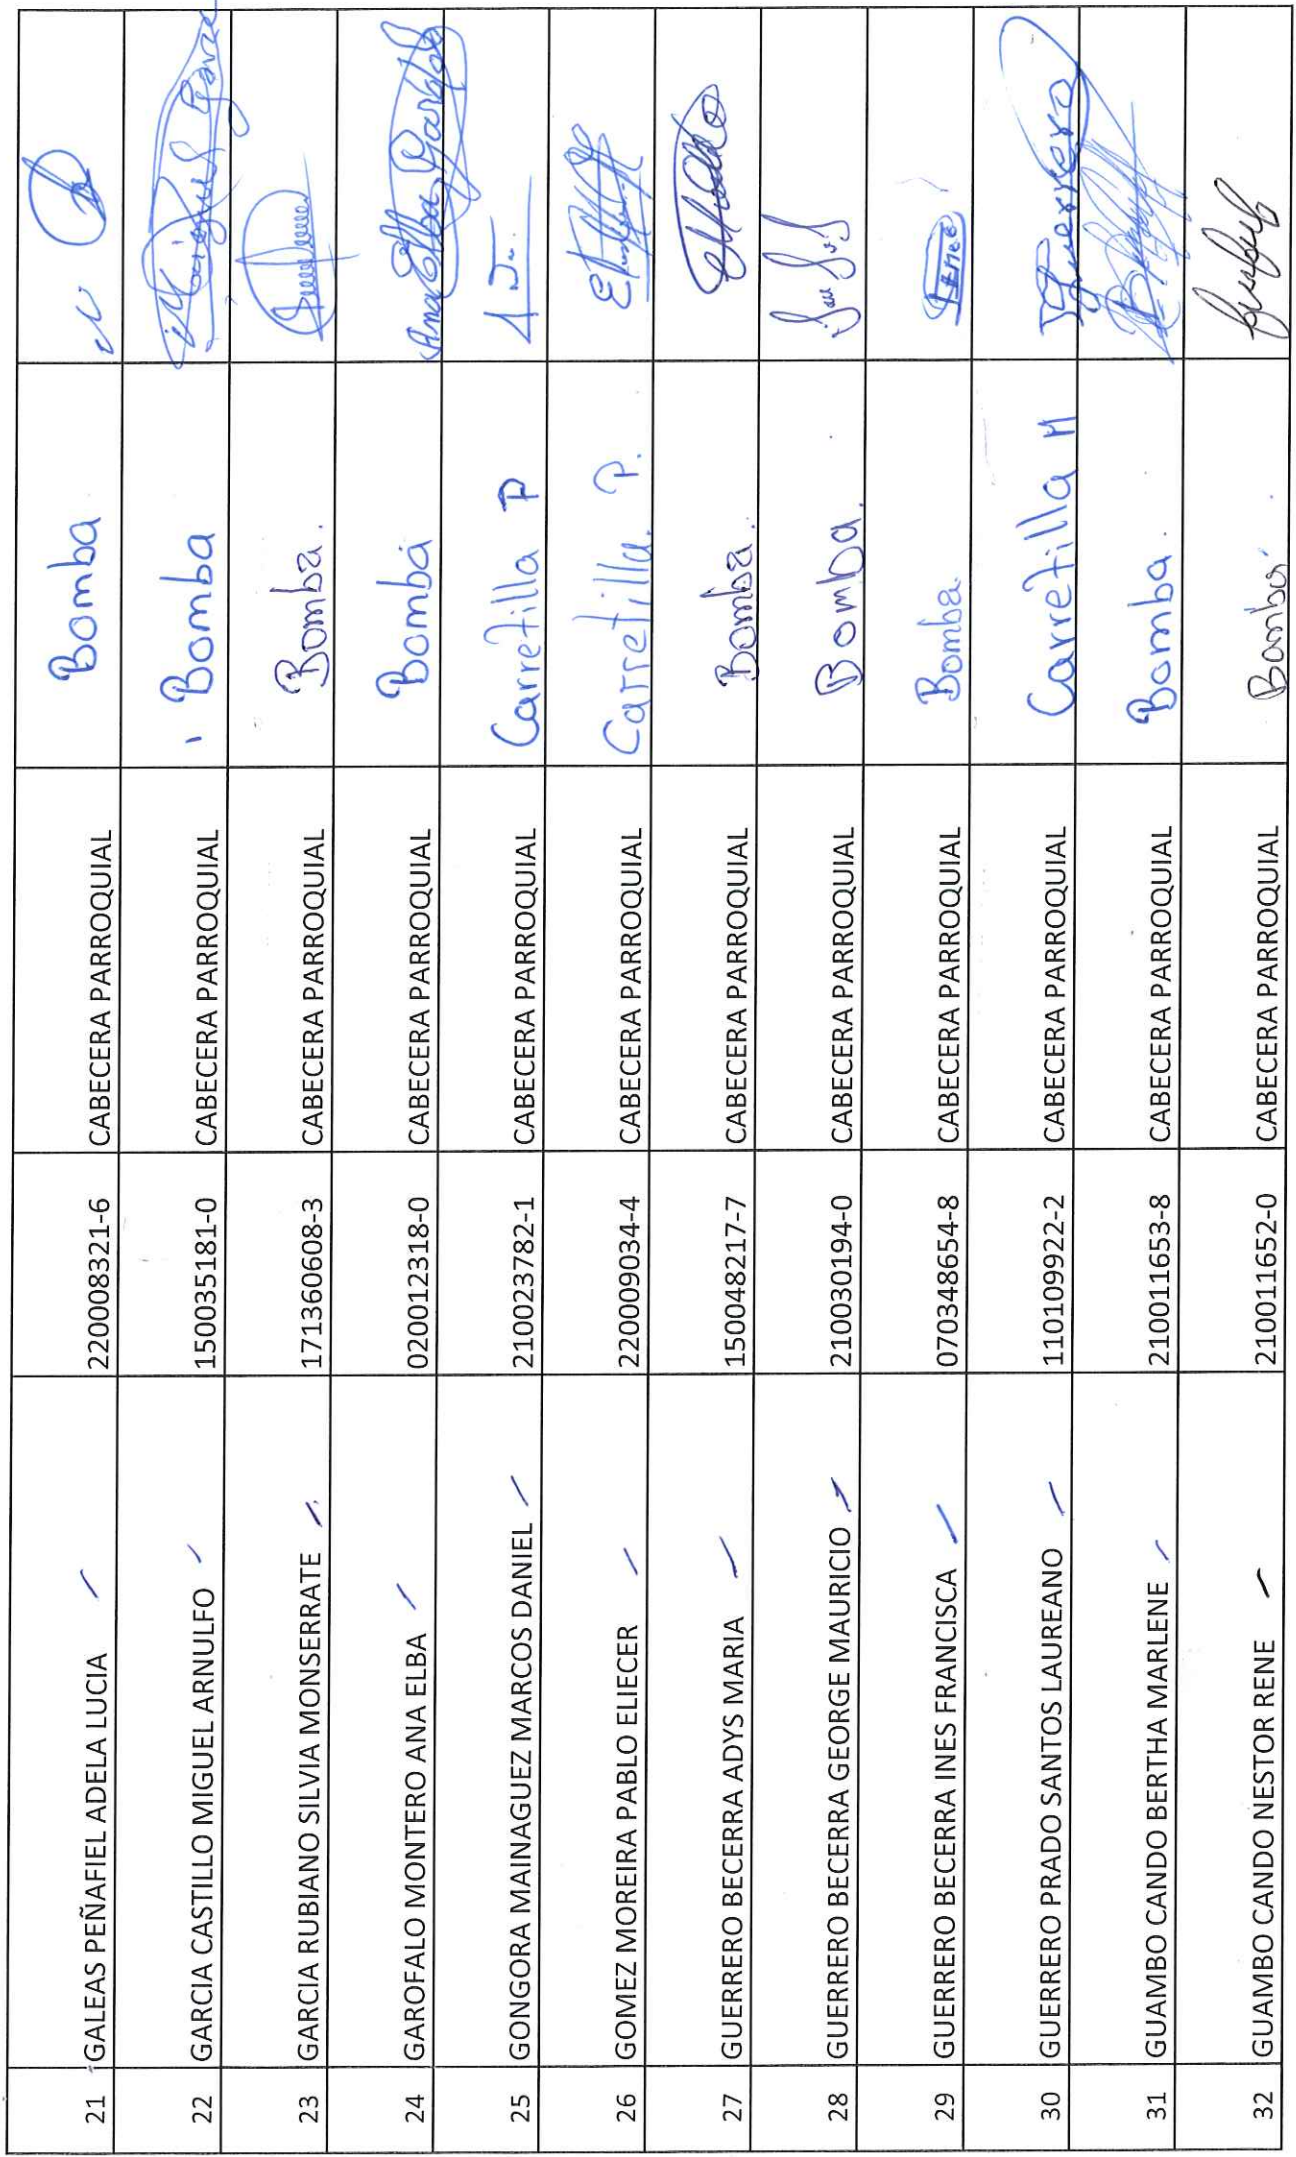 21 GALEAS PEÑAFIEL ADELA LUCIA 220008321-6 CABECERA PARROQUIAL Bomba
22 GARCIA CASTILLO MIGUEL ARNULFO 150035181-0 CABECERA PARROQUIAL Bomba
23 GARCIA RUBIANO SILVIA MONSERRATE 171360608-3 CABECERA PARROQUIAL Bomba.
24 GAROFALO MONTERO ANA ELBA 020012318-0 CABECERA PARROQUIAL Bomba Ana Elba Garofalo
25 GONGORA MAINAGUEZ MARCOS DANIEL 210023782-1 CABECERA PARROQUIAL Carretilla P
26 GOMEZ MOREIRA PABLO ELIECER 220009034-4 CABECERA PARROQUIAL Carretilla P.
27 GUERRERO BECERRA ADYS MARIA 150048217-7 CABECERA PARROQUIAL Bomba.
28 GUERRERO BECERRA GEORGE MAURICIO 210030194-0 CABECERA PARROQUIAL Bomba.
29 GUERRERO BECERRA INES FRANCISCA 070348654-8 CABECERA PARROQUIAL Bomba
30 GUERRERO PRADO SANTOS LAUREANO 110109922-2 CABECERA PARROQUIAL Carretilla M Guerrero
31 GUAMBO CANDO BERTHA MARLENE 210011653-8 CABECERA PARROQUIAL Bomba.
32 GUAMBO CANDO NESTOR RENE 210011652-0 CABECERA PARROQUIAL Bomba